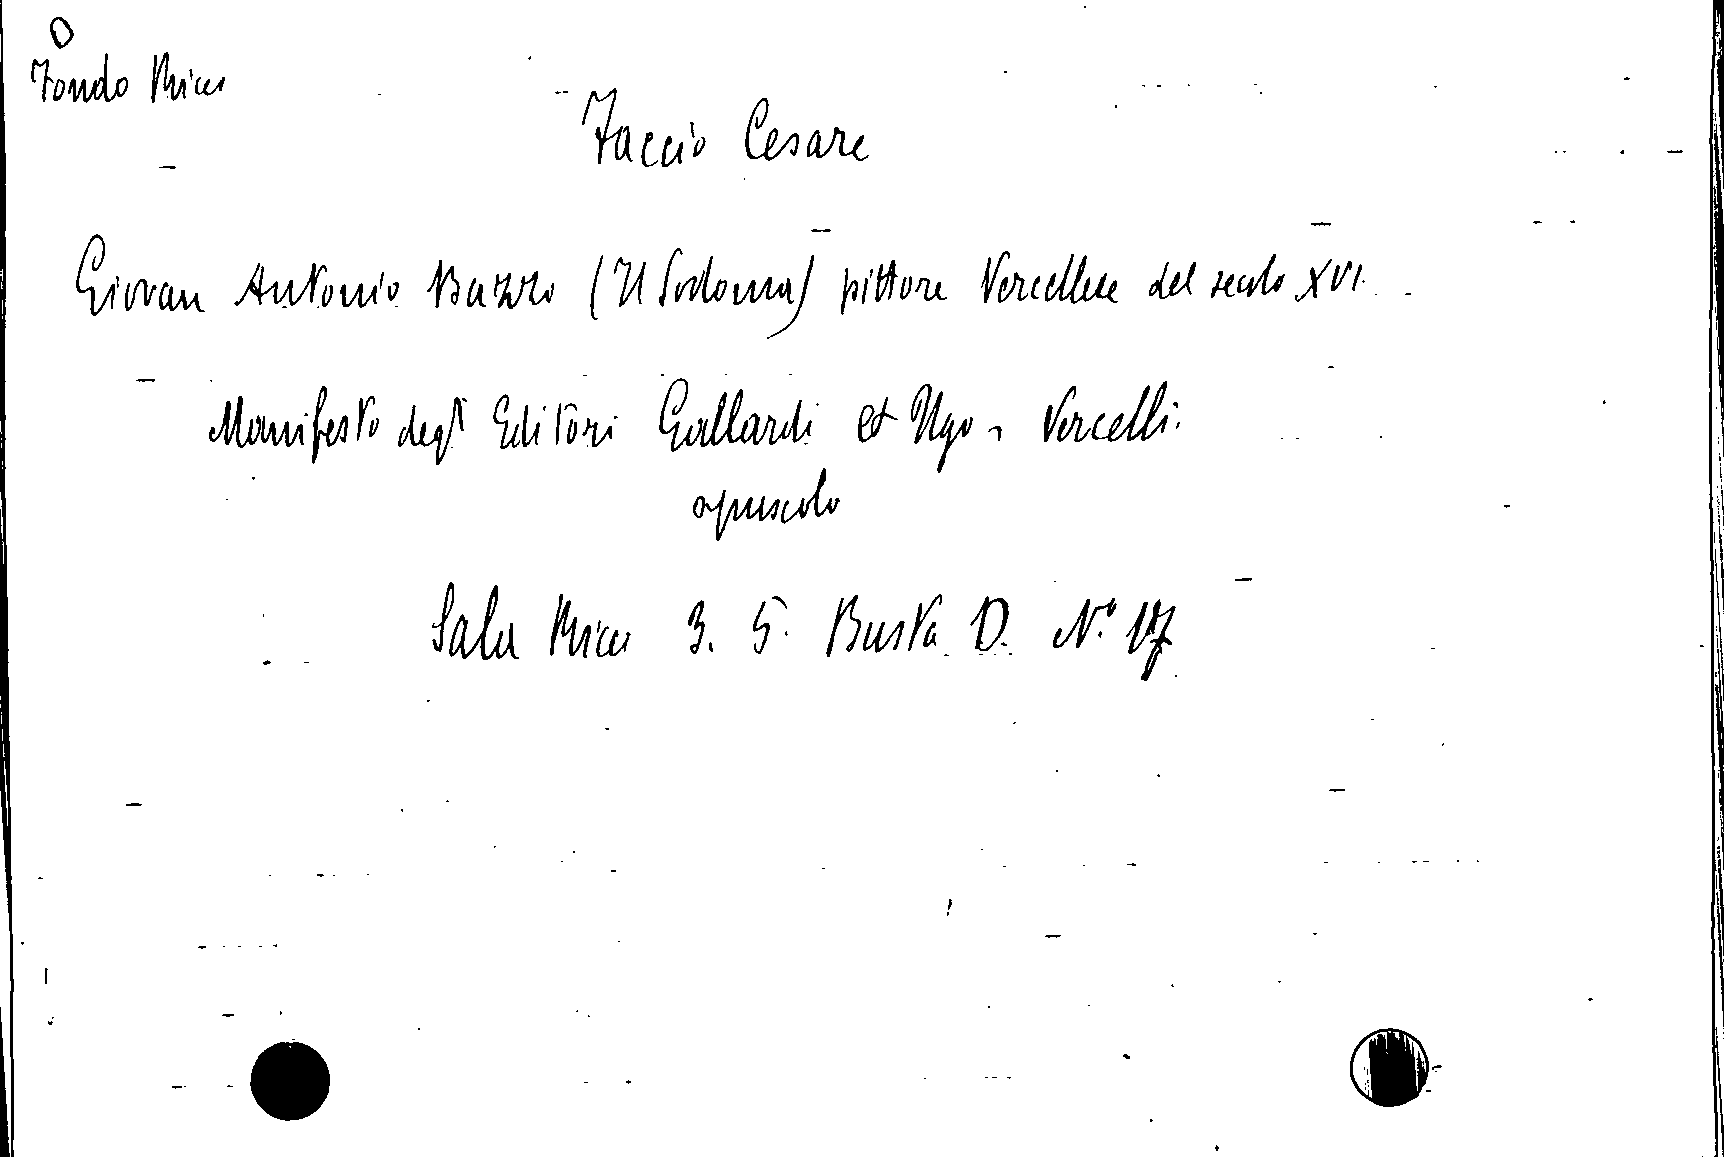 O
Fondo Ricci
Faccio Cesare
Giovan Antonio Bazzo (Il Sodoma) pittore Vercellese del secolo XVI.
Manifesto degli Editori Gallardi et Ugo - Vercelli.
opuscolo
Sala Ricci 3. 5. Busta D. N.º 17